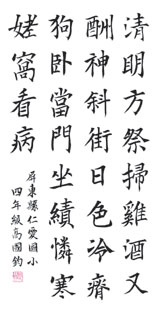 清明方祭掃雞酒又
酬神斜街日色冷瘠
狗卧當門坐績憐寒
姥窩看病
屏東縣仁愛國小
四年級高國鈞